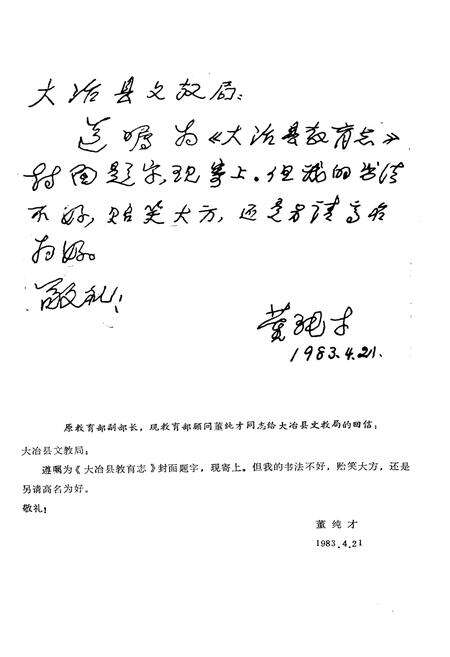 大冶县文教局:
遵嘱为《大冶县教育志》
封面题字,现寄上。但我的书法
不好,贻笑大方,还是另请高名
为好。
敬礼!
董纯才
1983.4.21.
原教育部副部长,现教育部顾问董纯才同志给大冶县文教局的回信:
大冶县文教局:
遵嘱为《大冶县教育志》封面题字,现寄上。但我的书法不好,贻笑大方,还是
另请高名为好。
敬礼!
董纯才
1983.4.21